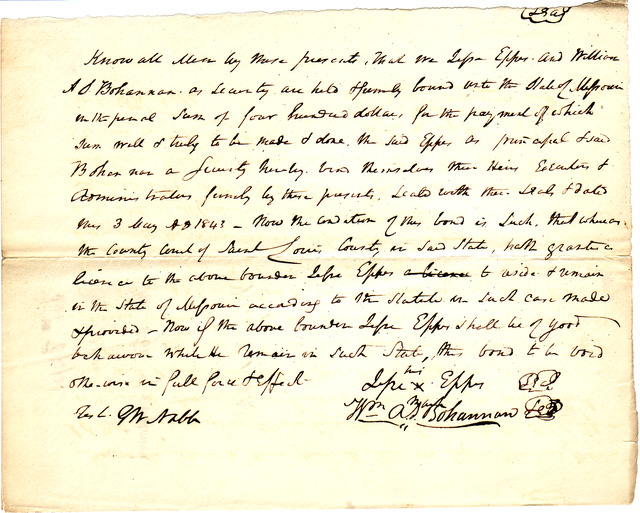 Seal
Know all Men by these presents, that we Jesse Eppes and William
A D Bohannan as security are held & firmly bound unto the State of Missouri
in the penal sum of four hundred dollars for the payment of which
sum well & truly to be made & done, the said Eppes as principal & said
Bohannan as Security hereby bind themselves their Heirs Executors &
Administrators firmly by these presents, Sealed with their Seals & dated
this 3 May AD 1843 - Now the condition of this bond is Such, that whereas
the County Court of Saint Louis County in said State, hath granted a
licence to the above bounden Jesse Eppes a licence to reside & remain
in the State of Missouri according to the Statute in such case made
& provided - Now if the above bounden Jesse Eppes shall be of good
behaviour while he remain in such State, this bond to be void
otherwise in full force & effect
Jesse his x mark Eppes Seal
Test. Wm A D Bohannan Seal